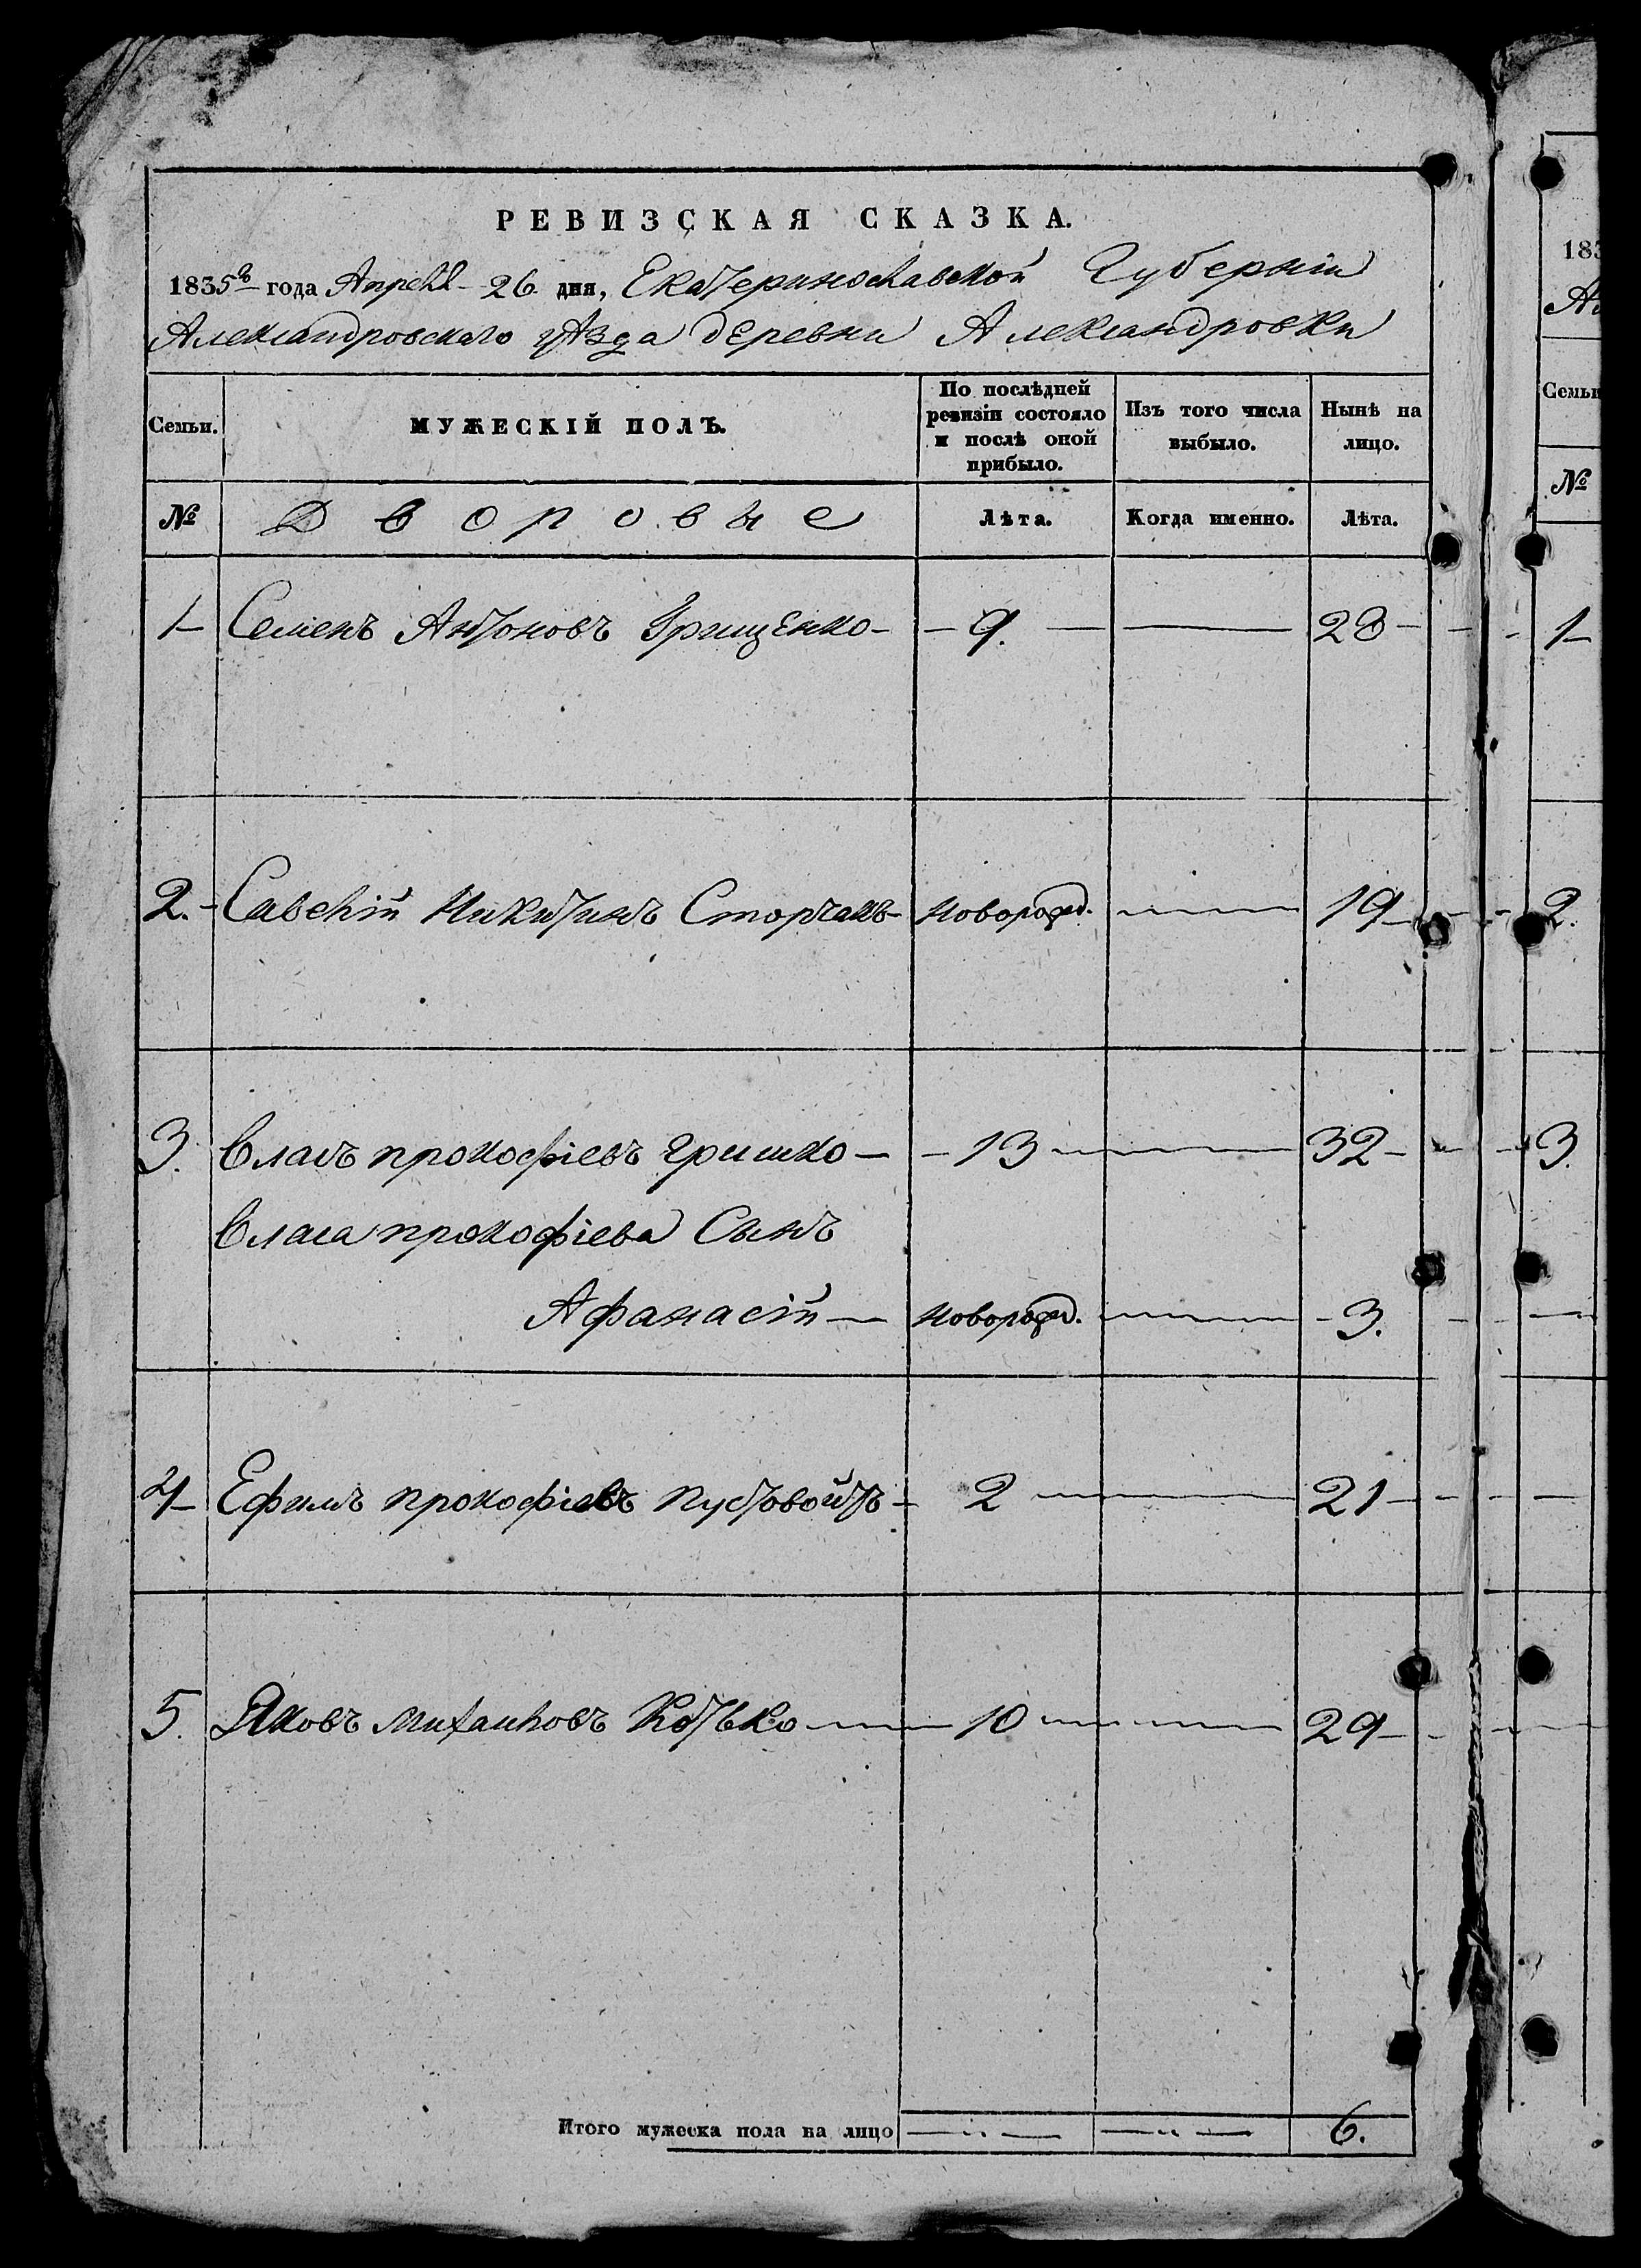 РЕВИЗСКАЯ СКАЗКА.
1835го года Апреля 26 дня, Екатеринославской Губерніи
Александровскаго уѣзда деревни Александровки
Семьи.
МУЖЕСКІЙ ПОЛЪ.
По послѣдней ревизіи состояло и послѣ оной прибыло.
Изъ того числа выбыло.
Нынѣ на лицо.
№ Дворовые Лѣта. Когда именно. Лѣта.
1 Семенъ Антоновъ Грищенко 9. 28
2. Савелій Никитинъ Сторчакъ новорожд. 19
3. Власъ прокофіевъ гришко 13 32
Власа прокофіева Сынъ
Афанасій новорожд. 3.
4 Ефимъ прокофіевъ пустовойтъ 2 21
5. Яковъ михаиловъ Котько 10 29
Итого мужеска пола на лицо 6.
183
Семьи
№
1
2.
3.